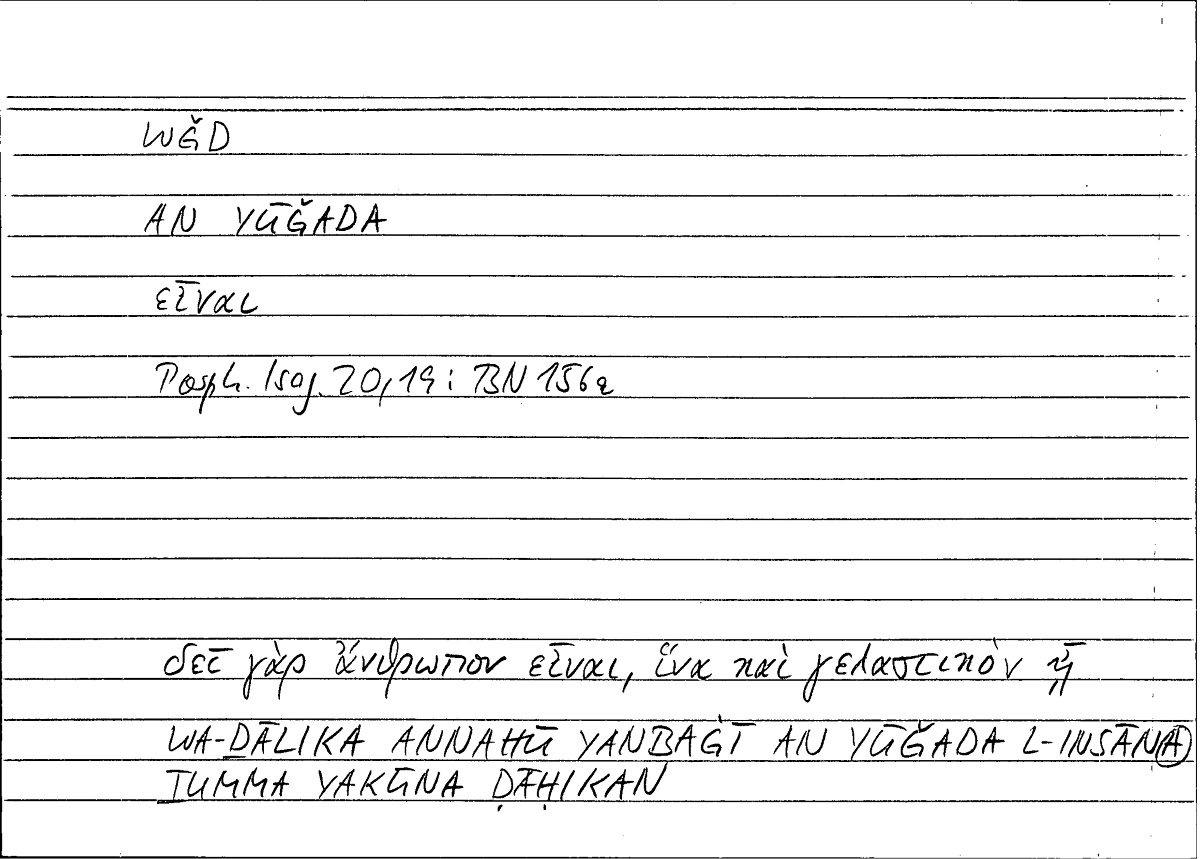 WǦD
AN YŪǦADA
εἶναι
Porph. Isag. 20,19 : BN 156a
δεῖ γὰρ ἄνθρωπον εἶναι, ἵνα καὶ γελαστικὸν ᾖ
WA-ḎĀLIKA ANNAHŪ YANBAĠĪ AN YŪǦADA L-INSĀNA
ṮUMMA YAKŪNA ḌĀḤIKAN